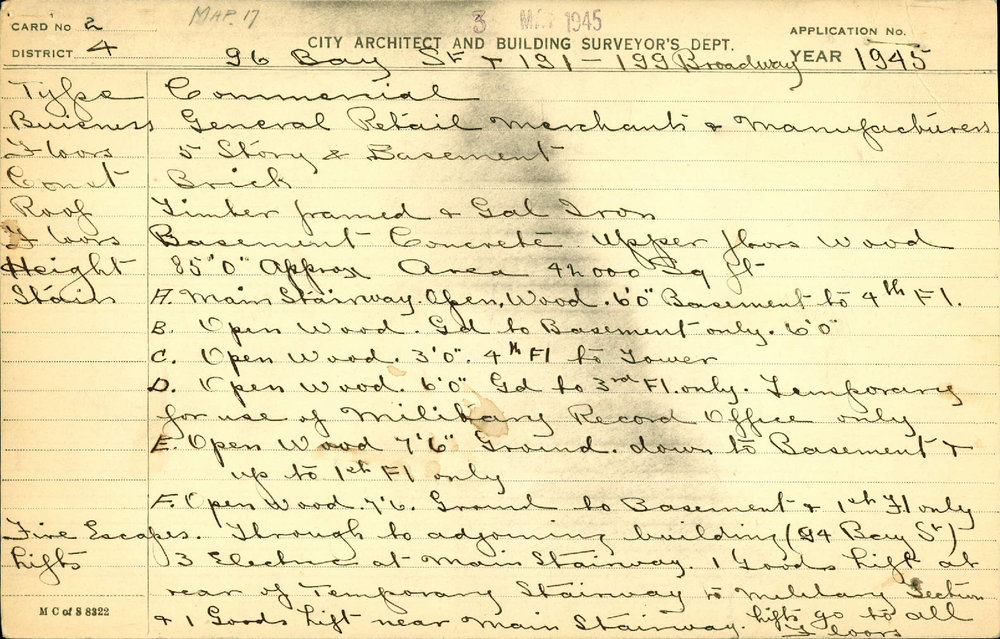 MAP. 17
3 MAY 1945
CARD NO 2
DISTRICT 4
CITY ARCHITECT AND BUILDING SURVEYOR'S DEPT.
APPLICATION NO.
YEAR 1945
96 Bay St & 191-199 Broadway
Type Commercial
Buisness General Retail Merchants & Manufacturers
Floors 5 Story & Basement
Const Brick
Roof Timber framed & Gal Iron
Floors Basement Concrete. Upper floors Wood
Height 85'0" Approx Area 42000 Sq ft
Stairs A. Main Stairway. Open, Wood. 6'0" Basement to 4th Fl.
B. Open Wood. Gd to Basement only. 6'0"
C. Open Wood. 3'0". 4th Fl to Tower
D. Open Wood. 6'0" Gd to 3rd Fl. only. Temporary
for use of Military Record Office only
E. Open Wood 7'6" Ground. down to Basement &
up to 1st Fl only
F. Open Wood. 7'6. Ground to Basement & 1st Fl only
Fire Escapes. Through to adjoining building (94 Bay St)
Lifts 3 Electric at Main Stairway. 1 Goods Lift at
rear of Temporary Stairway to Military Section
& 1 Goods Lift near Main Stairway. Lifts go to all
Floors
M C of S 8322